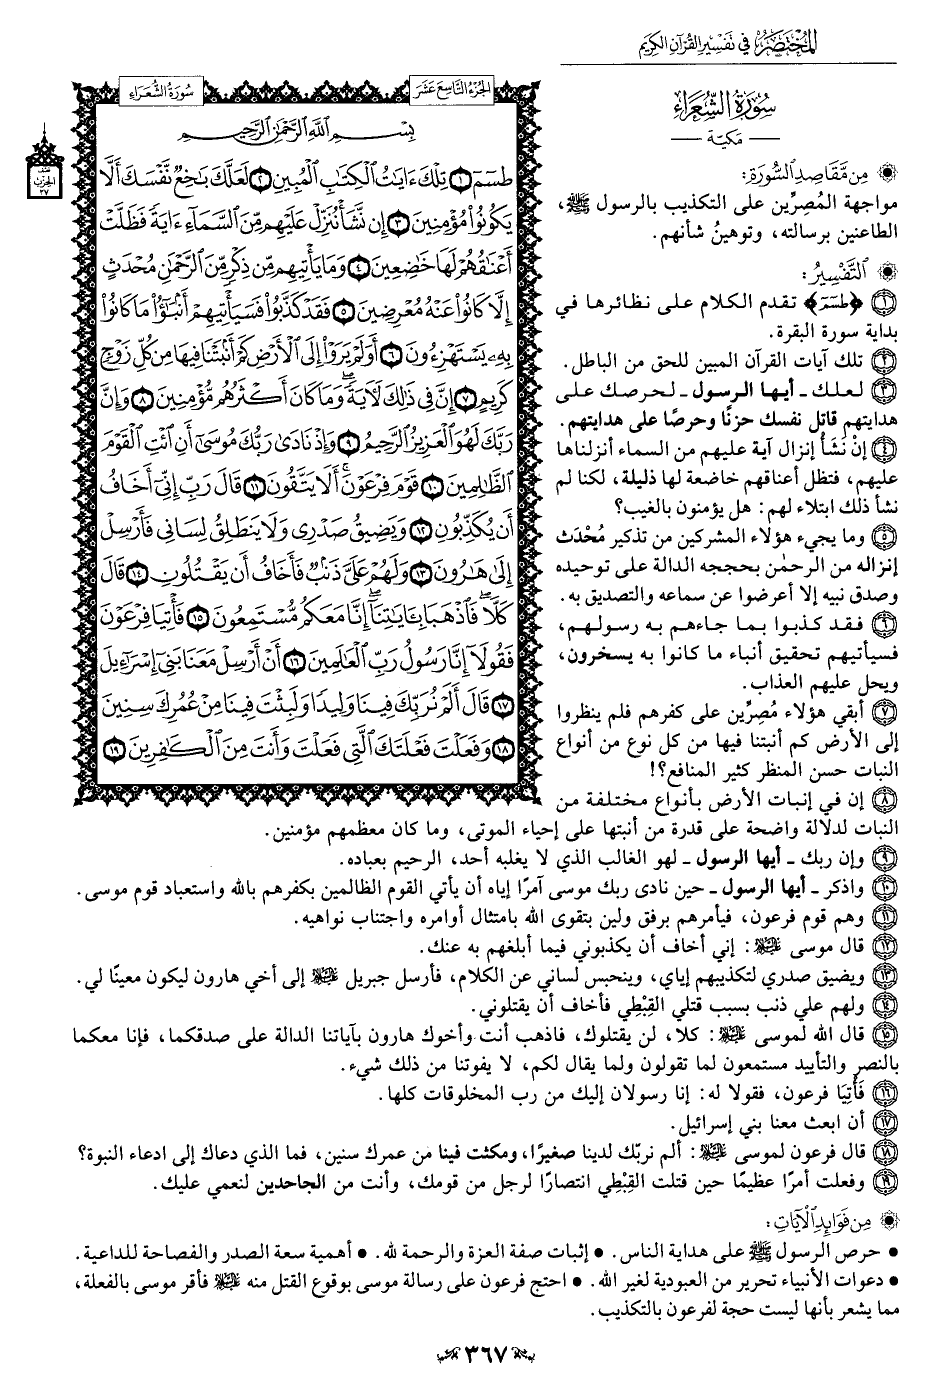 المختصر في تفسير القرآن الكريم
الجزء التاسع عشر
سورة الشعراء
بِسْمِ اللَّهِ الرَّحْمَٰنِ الرَّحِيمِ
طسٓمٓ ١ تِلْكَ ءَايَٰتُ ٱلْكِتَٰبِ ٱلْمُبِينِ ٢ لَعَلَّكَ بَٰخِعٌ نَّفْسَكَ أَلَّا
يَكُونُوا۟ مُؤْمِنِينَ ٣ إِن نَّشَأْ نُنَزِّلْ عَلَيْهِم مِّنَ ٱلسَّمَآءِ ءَايَةً فَظَلَّتْ
أَعْنَٰقُهُمْ لَهَا خَٰضِعِينَ ٤ وَمَا يَأْتِيهِم مِّن ذِكْرٍ مِّنَ ٱلرَّحْمَٰنِ مُحْدَثٍ
إِلَّا كَانُوا۟ عَنْهُ مُعْرِضِينَ ٥ فَقَدْ كَذَّبُوا۟ فَسَيَأْتِيهِمْ أَنۢبَٰٓؤُا۟ مَا كَانُوا۟
بِهِۦ يَسْتَهْزِءُونَ ٦ أَوَلَمْ يَرَوْا۟ إِلَى ٱلْأَرْضِ كَمْ أَنۢبَتْنَا فِيهَا مِن كُلِّ زَوْجٍ
كَرِيمٍ ٧ إِنَّ فِى ذَٰلِكَ لَءَايَةً ۖ وَمَا كَانَ أَكْثَرُهُم مُّؤْمِنِينَ ٨ وَإِنَّ
رَبَّكَ لَهُوَ ٱلْعَزِيزُ ٱلرَّحِيمُ ٩ وَإِذْ نَادَىٰ رَبُّكَ مُوسَىٰٓ أَنِ ٱئْتِ ٱلْقَوْمَ
ٱلظَّٰلِمِينَ ١٠ قَوْمَ فِرْعَوْنَ ۚ أَلَا يَتَّقُونَ ١١ قَالَ رَبِّ إِنِّىٓ أَخَافُ
أَن يُكَذِّبُونِ ١٢ وَيَضِيقُ صَدْرِى وَلَا يَنطَلِقُ لِسَانِى فَأَرْسِلْ
إِلَىٰ هَٰرُونَ ١٣ وَلَهُمْ عَلَىَّ ذَنۢبٌ فَأَخَافُ أَن يَقْتُلُونِ ١٤ قَالَ
كَلَّا ۖ فَٱذْهَبَا بِـَٔايَٰتِنَآ ۖ إِنَّا مَعَكُم مُّسْتَمِعُونَ ١٥ فَأْتِيَا فِرْعَوْنَ
فَقُولَآ إِنَّا رَسُولُ رَبِّ ٱلْعَٰلَمِينَ ١٦ أَنْ أَرْسِلْ مَعَنَا بَنِىٓ إِسْرَٰٓءِيلَ
١٧ قَالَ أَلَمْ نُرَبِّكَ فِينَا وَلِيدًا وَلَبِثْتَ فِينَا مِنْ عُمُرِكَ سِنِينَ
١٨ وَفَعَلْتَ فَعْلَتَكَ ٱلَّتِى فَعَلْتَ وَأَنتَ مِنَ ٱلْكَٰفِرِينَ ١٩
الحزب
٣٧
سورة الشعراء
مكية
من مقاصد السورة:
مواجهة المُصِرِّين على التكذيب بالرسول ﷺ،
الطاعنين برسالته، وتوهينُ شأنهم.
التفسير:
١ ﴿طسٓمٓ﴾ تقدم الكلام على نظائرها في
بداية سورة البقرة.
٢ تلك آيات القرآن المبين للحق من الباطل.
٣ لعلك ـ أيها الرسول ـ لحرصك على
هدايتهم قاتل نفسك حزنًا وحرصًا على هدايتهم.
٤ إنْ نَشَأْ إنزال آية عليهم من السماء أنزلناها
عليهم، فتظل أعناقهم خاضعة لها ذليلة، لكنا لم
نشأ ذلك ابتلاء لهم: هل يؤمنون بالغيب؟
٥ وما يجيء هؤلاء المشركين من تذكير مُحْدَث
إنزاله من الرحمٰن بحججه الدالة على توحيده
وصدق نبيه إلا أعرضوا عن سماعه والتصديق به.
٦ فقد كذبوا بما جاءهم به رسولهم،
فسيأتيهم تحقيق أنباء ما كانوا به يسخرون،
ويحل عليهم العذاب.
٧ أبقي هؤلاء مُصِرِّين على كفرهم فلم ينظروا
إلى الأرض كم أنبتنا فيها من كل نوع من أنواع
النبات حسن المنظر كثير المنافع؟!
٨ إن في إنبات الأرض بأنواع مختلفة من
النبات لدلالة واضحة على قدرة من أنبتها على إحياء الموتى، وما كان معظمهم مؤمنين.
٩ وإن ربك ـ أيها الرسول ـ لهو الغالب الذي لا يغلبه أحد، الرحيم بعباده.
١٠ واذكر ـ أيها الرسول ـ حين نادى ربك موسى آمرًا إياه أن يأتي القوم الظالمين بكفرهم بالله واستعباد قوم موسى.
١١ وهم قوم فرعون، فيأمرهم برفق ولين بتقوى الله بامتثال أوامره واجتناب نواهيه.
١٢ قال موسى ﵇: إني أخاف أن يكذبوني فيما أبلغهم به عنك.
١٣ ويضيق صدري لتكذيبهم إياي، وينحبس لساني عن الكلام، فأرسل جبريل ﵇ إلى أخي هارون ليكون معينًا لي.
١٤ ولهم علي ذنب بسبب قتلي القِبْطِي فأخاف أن يقتلوني.
١٥ قال الله لموسى ﵇: كلا، لن يقتلوك، فاذهب أنت وأخوك هارون بآياتنا الدالة على صدقكما، فإنا معكما
بالنصر والتأييد مستمعون لما تقولون ولما يقال لكم، لا يفوتنا من ذلك شيء.
١٦ فَأْتِيَا فرعون، فقولا له: إنا رسولان إليك من رب المخلوقات كلها.
١٧ أن ابعث معنا بني إسرائيل.
١٨ قال فرعون لموسى ﵇: ألم نربّك لدينا صغيرًا، ومكثت فينا من عمرك سنين، فما الذي دعاك إلى ادعاء النبوة؟
١٩ وفعلت أمرًا عظيمًا حين قتلت القِبْطِي انتصارًا لرجل من قومك، وأنت من الجاحدين لنعمي عليك.
من فوائد الآيات:
• حرص الرسول ﷺ على هداية الناس. • إثبات صفة العزة والرحمة لله. • أهمية سعة الصدر والفصاحة للداعية.
• دعوات الأنبياء تحرير من العبودية لغير الله. • احتج فرعون على رسالة موسى بوقوع القتل منه ﵇ فأقر موسى بالفعلة،
مما يشعر بأنها ليست حجة لفرعون بالتكذيب.
٣٦٧